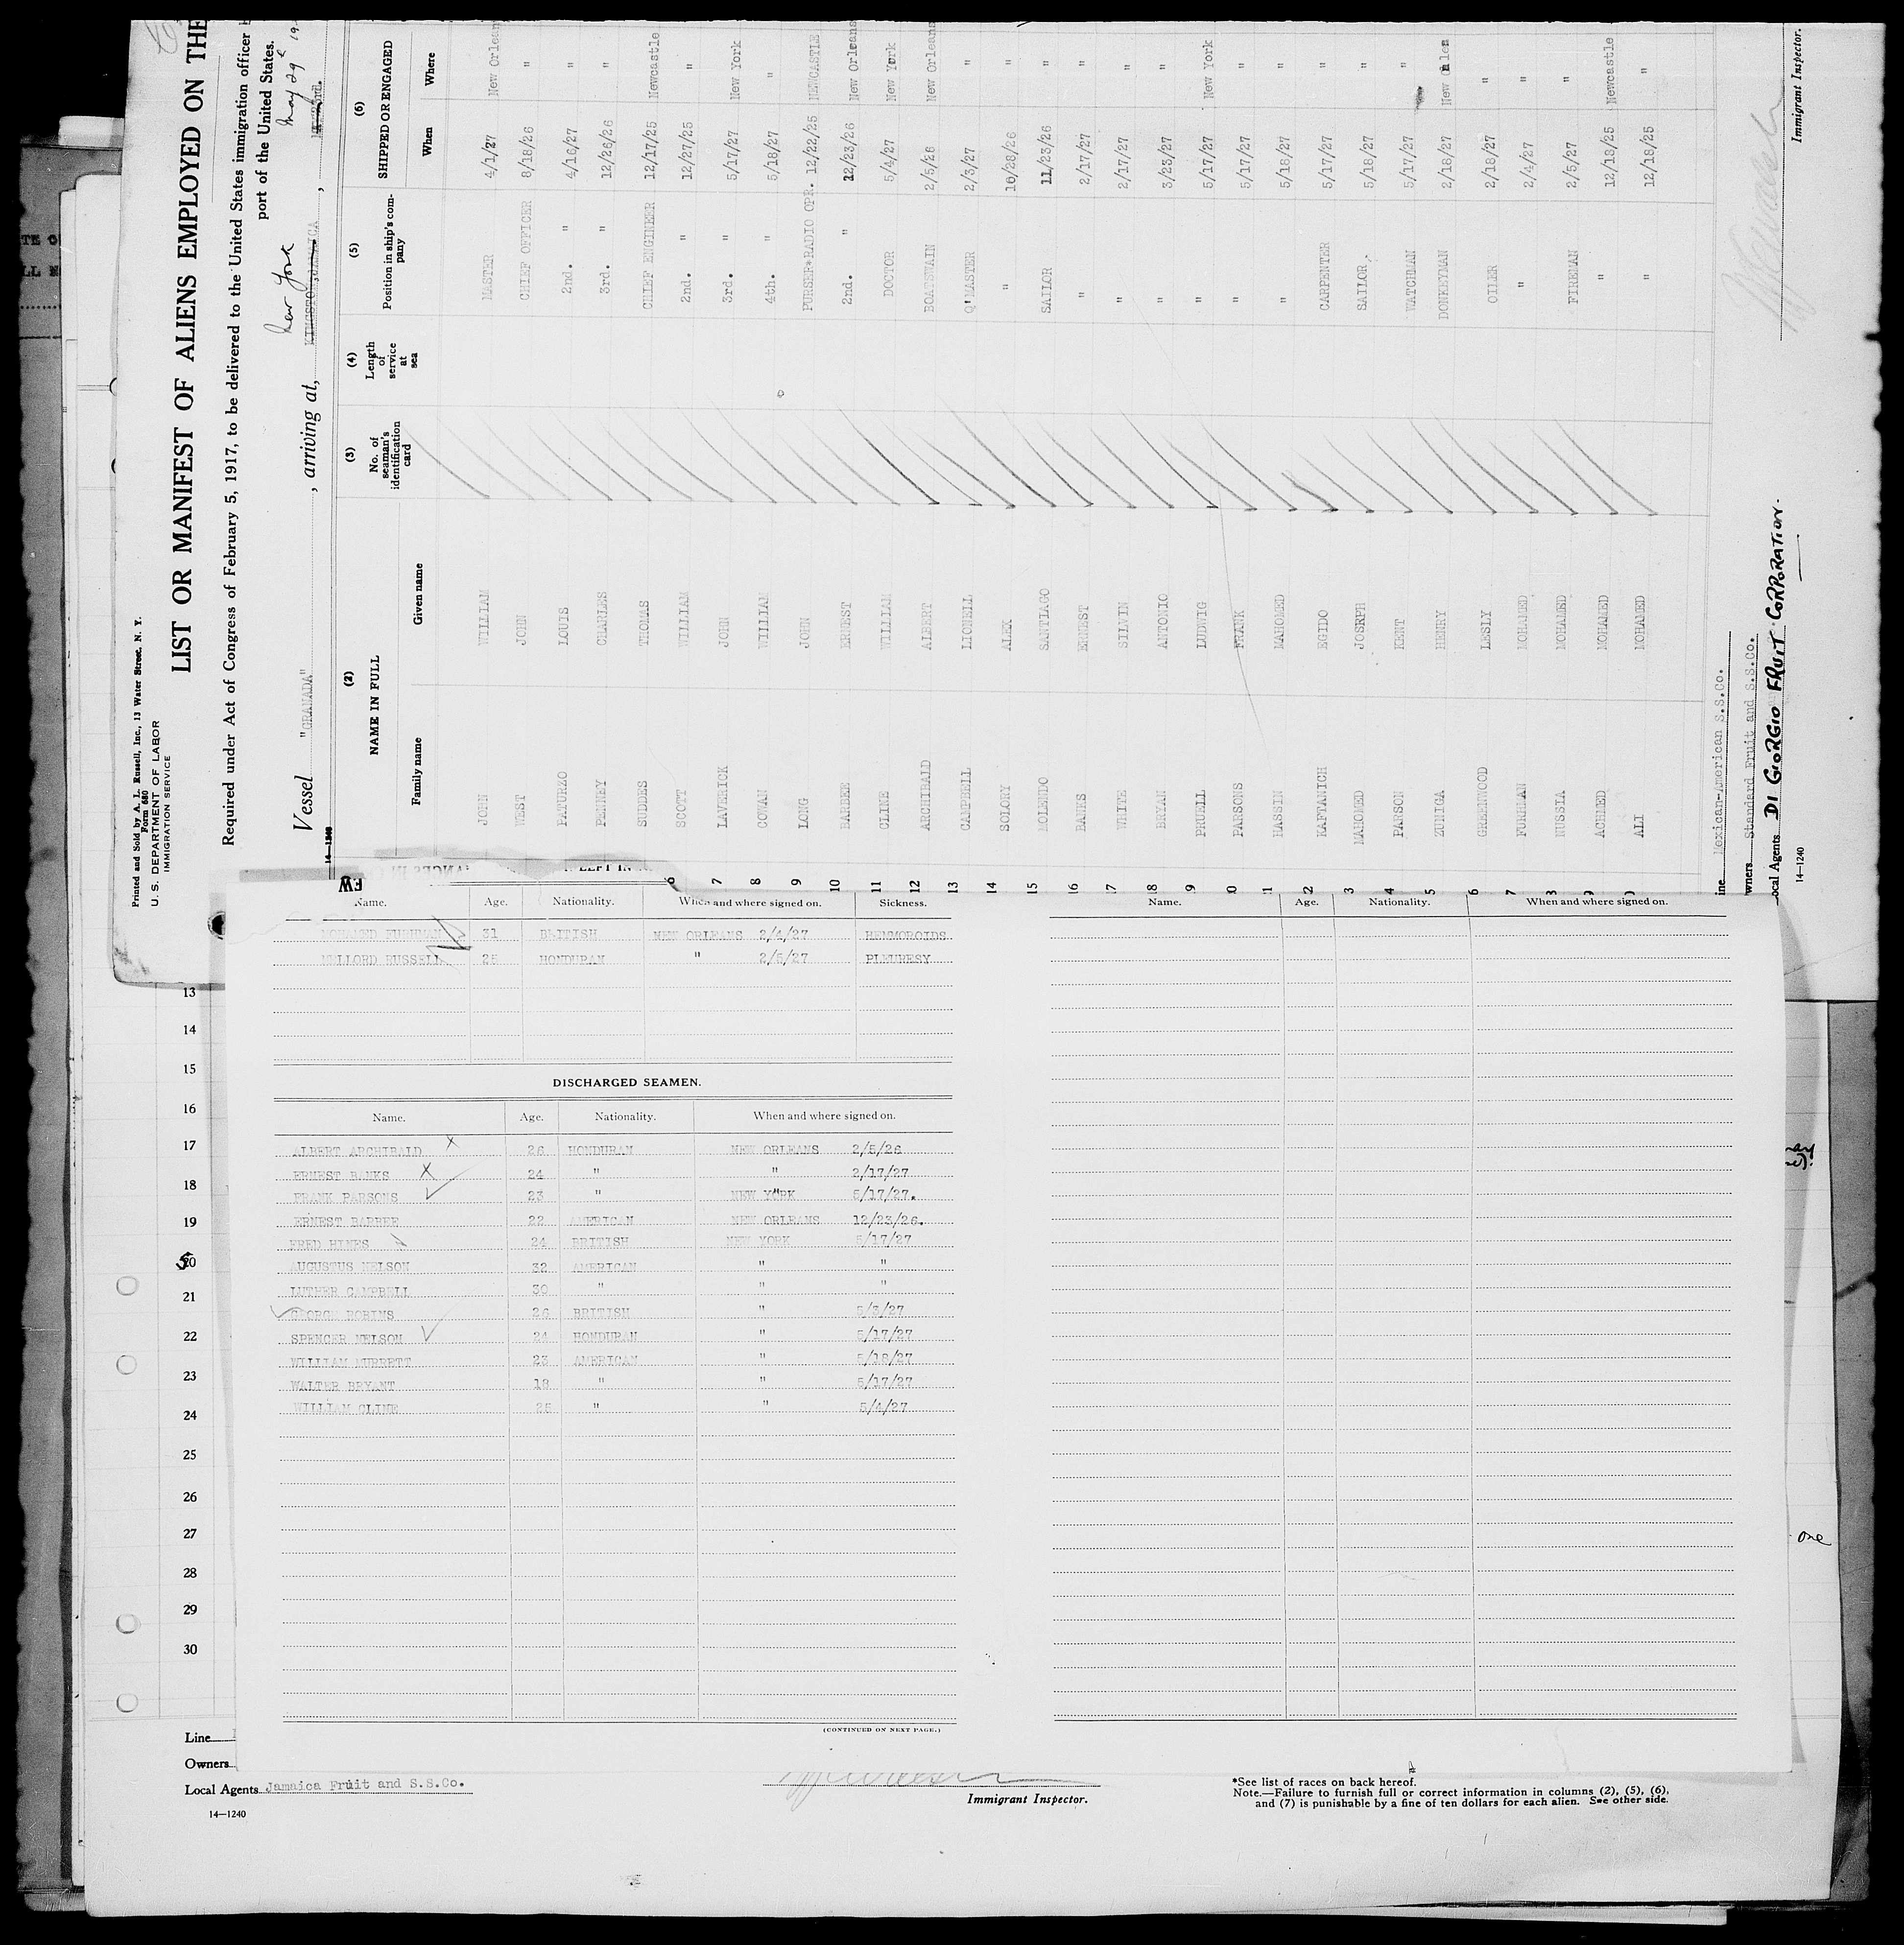 Printed and Sold by A. L. Russell, Inc., 13 Water Street, N. Y.
Form 680
U. S. DEPARTMENT OF LABOR
IMMIGRATION SERVICE
LIST OR MANIFEST OF ALIENS EMPLOYED ON THE
Required under Act of Congress of February 5, 1917, to be delivered to the United States immigration officer
port of the United States.
Vessel "GRANADA", arriving at, KINGSTON, JAMAICA New York, May 29th 19
14—1240
(2) NAME IN FULL (3) No. of seaman's identification card (4) Length of service at sea (5) Position in ship's company (6) SHIPPED OR ENGAGED
Family name Given name When Where
JOHN WILLIAM MASTER 4/1/27 New Orlean
WEST JOHN CHIEF OFFICER 8/18/26 "
PATURZO LOUIS 2nd. " 4/16/27 "
PENNEY CHARLES 3rd. " 12/26/26 "
SUDDES THOMAS CHIEF ENGINEER 12/17/25 Newcastle
6 SCOTT WILLIAM 2nd. " 12/27/25 "
7 LAVERICK JOHN 3rd. " 5/17/27 New York
8 COWAN WILLIAM 4th. " 5/18/27 "
9 LONG JOHN PURSER*RADIO OPR. 12/22/25 NEWCASTLE
10 BARBEE ERNEST 2nd. " 12/23/26 New Orleans
11 CLINE WILLIAM DOCTOR 5/4/27 New York
12 ARCHIBALD ALBERT BOATSWAIN 2/5/26 New Orleans
13 CAMPBELL LIONELL Q'MASTER 2/3/27 "
14 SOLORY ALEX " 10/28/26 "
15 MOLENDO SANTIAGO SAILOR 11/23/26 "
16 BANKS ERNEST " 2/17/27 "
17 WHITE SILVIN " 2/17/27 "
18 BRYAN ANTONIO " 3/23/27 "
9 PRUELL LUDWIG " 5/17/27 New York
0 PARSONS FRANK " 5/17/27 "
1 HASSIN MAHOMED " 5/18/27 "
2 KAFTANICH EGIDO CARPENTER 5/17/27 "
3 MAHOMED JOSEPH SAILOR 5/18/27 "
4 PARSON KENT WATCHMAN 5/17/27 "
5 ZUNIGA HENRY DONKEYMAN 2/18/27 New Orlea
6 GREENWOOD LESLY OILER 2/18/27 "
7 FURHMAN MOHAMED " 2/4/27 "
8 NUSSIA MOHAMED FIREMAN 2/5/27 "
9 ACHMED MOHAMED " 12/18/25 Newcastle
ALI MOHAMED " 12/18/25 "
ine Mexican-American S.S.Co.
wners Standard Fruit and S.S.Co.
ocal Agents DI GIORGIO FRUIT CORPORATION.
14—1240
Immigrant Inspector.
Name. Age. Nationality. When and where signed on. Sickness.
MOHAMED FURHMAN 31 BRITISH NEW ORLEANS 2/4/27 HEMMOROIDS
WELLORD RUSSELL 25 HONDURAN " 2/5/27 PLEURESY
DISCHARGED SEAMEN.
Name. Age. Nationality. When and where signed on.
ALBERT ARCHIBALD 26 HONDURAN NEW ORLEANS 2/5/26
ERNEST BANKS 24 " " 2/17/27
FRANK PARSONS 23 " NEW YORK 5/17/27.
ERNEST BARBEE 22 AMERICAN NEW ORLEANS 12/23/26.
FRED HINES 24 BRITISH NEW YORK 5/17/27
AUGUSTUS NELSON 32 AMERICAN " "
LUTHER CAMPBELL 30 " " "
GEORGE ROBINS 26 BRITISH " 5/3/27
SPENCER NELSON 24 HONDURAN " 5/17/27
WILLIAM BURRETT 23 AMERICAN " 5/18/27
WALTER BRYANT 18 " " 5/17/27
WILLIAM CLINE 25 " " 5/4/27
(CONTINUED ON NEXT PAGE.)
Name. Age. Nationality. When and where signed on.
13
14
15
16
17
18
19
20
21
22
23
24
25
26
27
28
29
30
one
Line
Owners
Local Agents Jamaica Fruit and S.S.Co.
14—1240
Immigrant Inspector.
*See list of races on back hereof.
Note.—Failure to furnish full or correct information in columns (2), (5), (6),
and (7) is punishable by a fine of ten dollars for each alien. See other side.